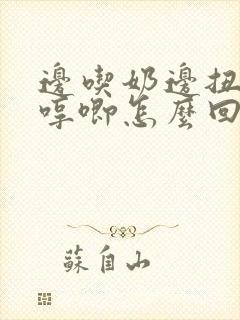 邊喫奶邊扭
哼唧怎麼回
蘇自山